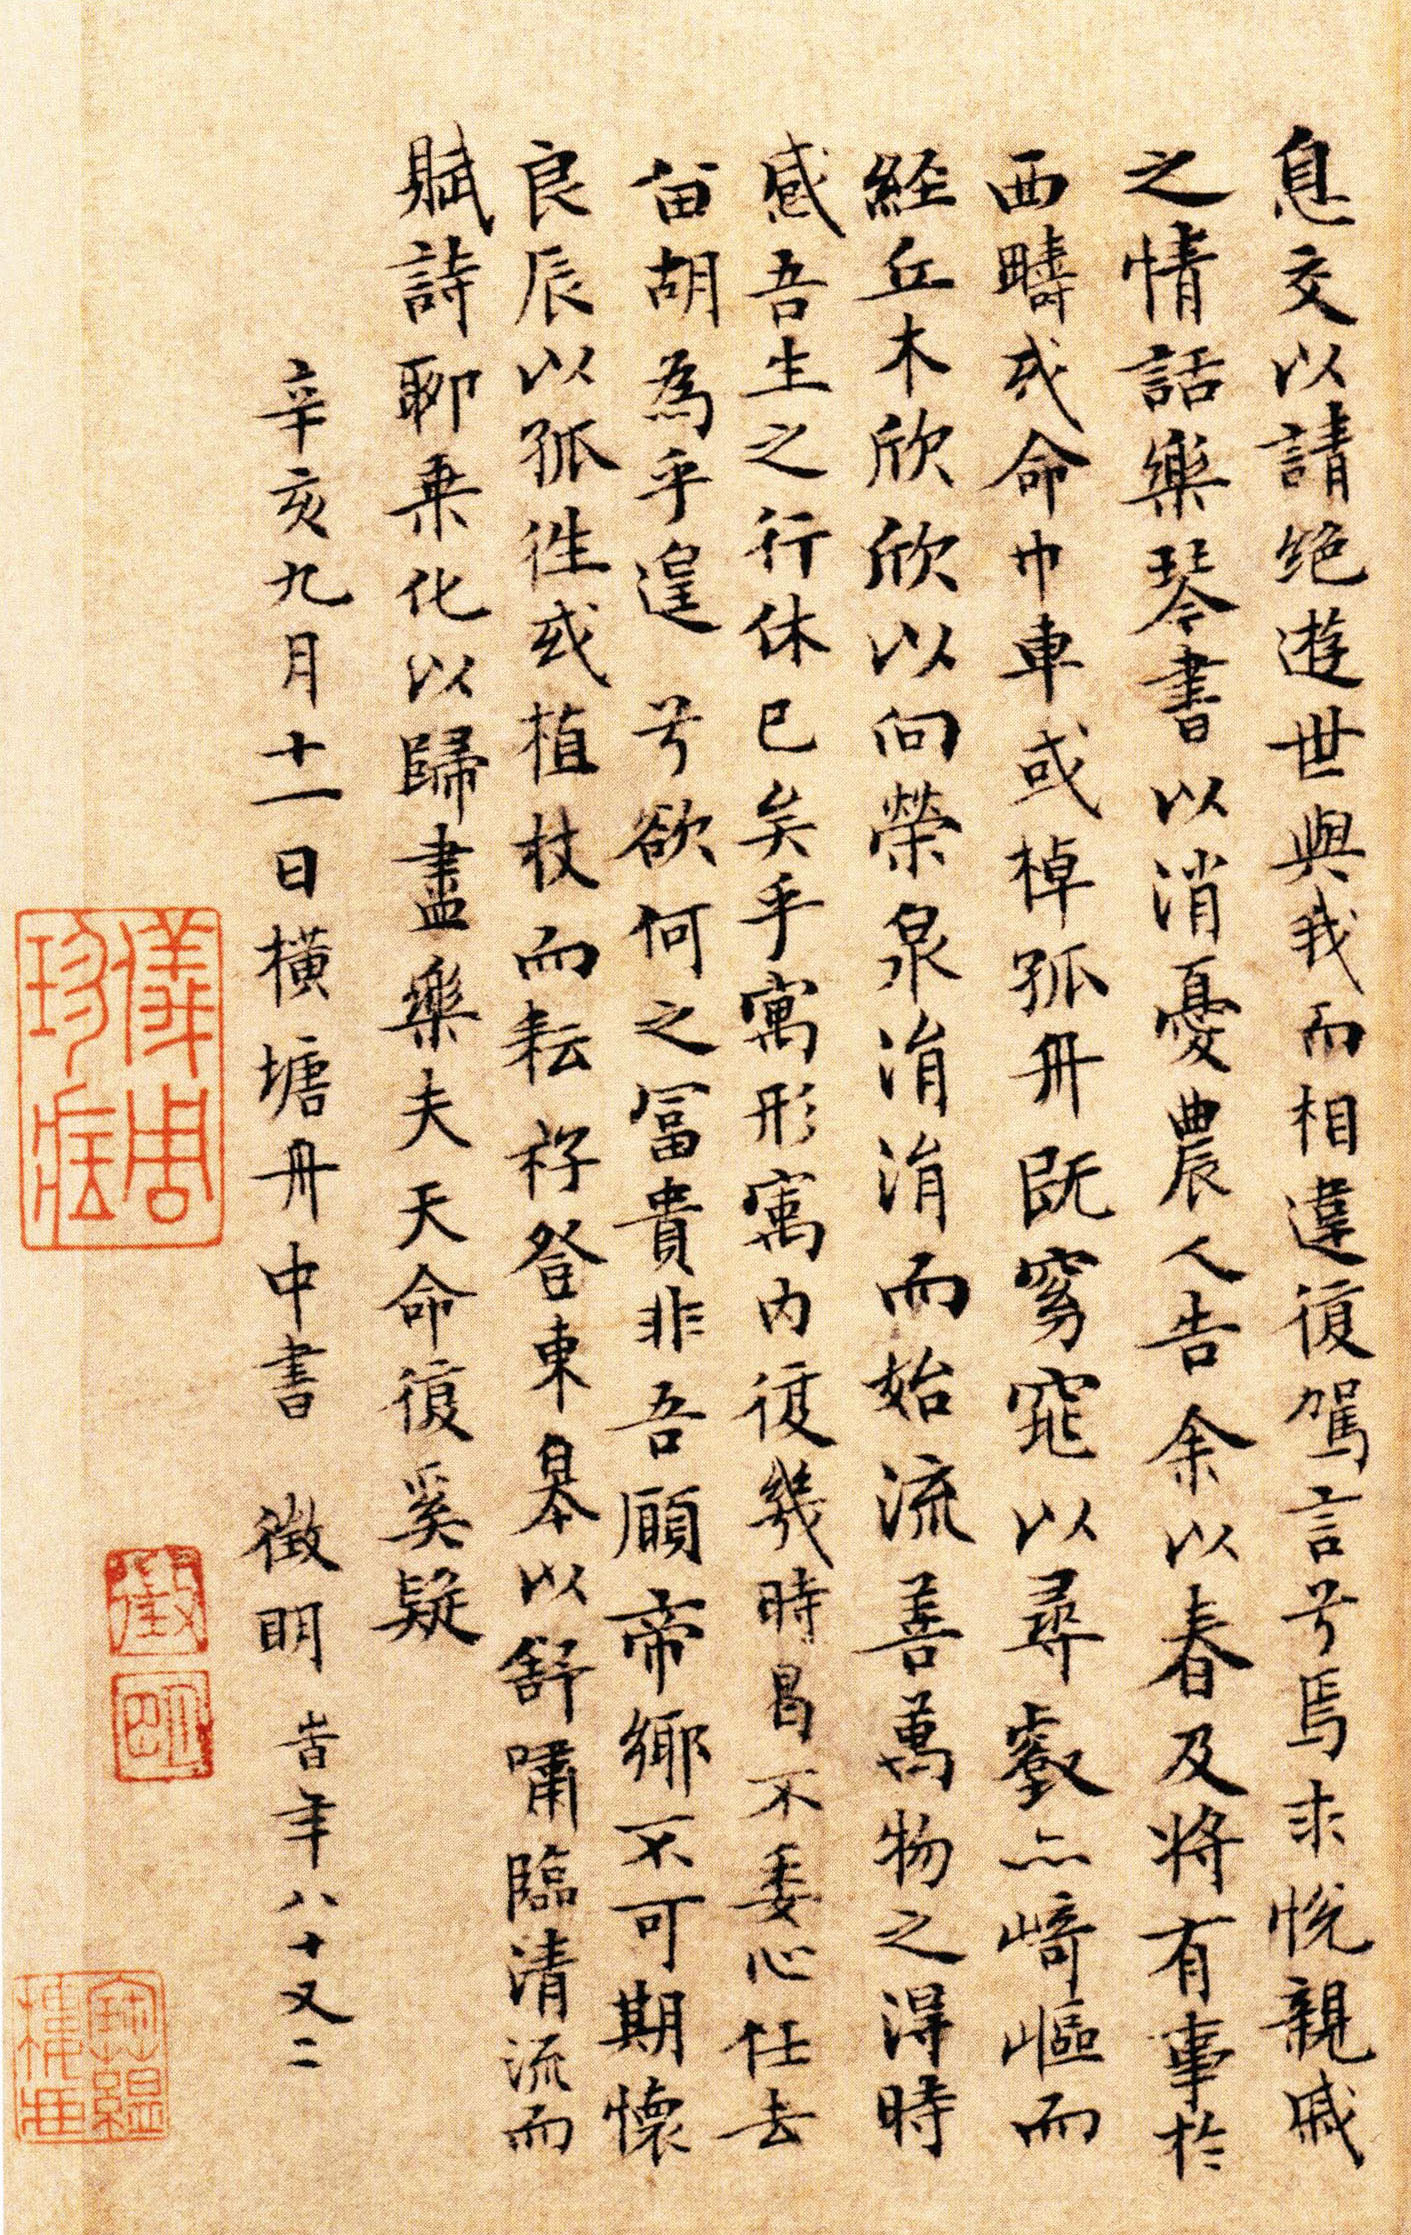 息交以請絕遊世與我而相違復駕言兮焉求悅親戚
之情話樂琴書以消憂農人告余以春及將有事於
西疇或命巾車或棹孤舟既窈窕以尋壑亦崎嶇而
經丘木欣欣以向榮泉涓涓而始流善萬物之得時
感吾生之行休已矣乎寓形寓內復幾時曷不委心任去
留胡為乎遑兮欲何之富貴非吾願帝鄉不可期懷
良辰以孤往或植杖而耘耔登東皋以舒嘯臨清流而
賦詩聊乗化以歸盡樂夫天命復奚疑
辛亥九月十一日橫塘舟中書 徵明 時年八十又二
儀周珍藏
徵
明